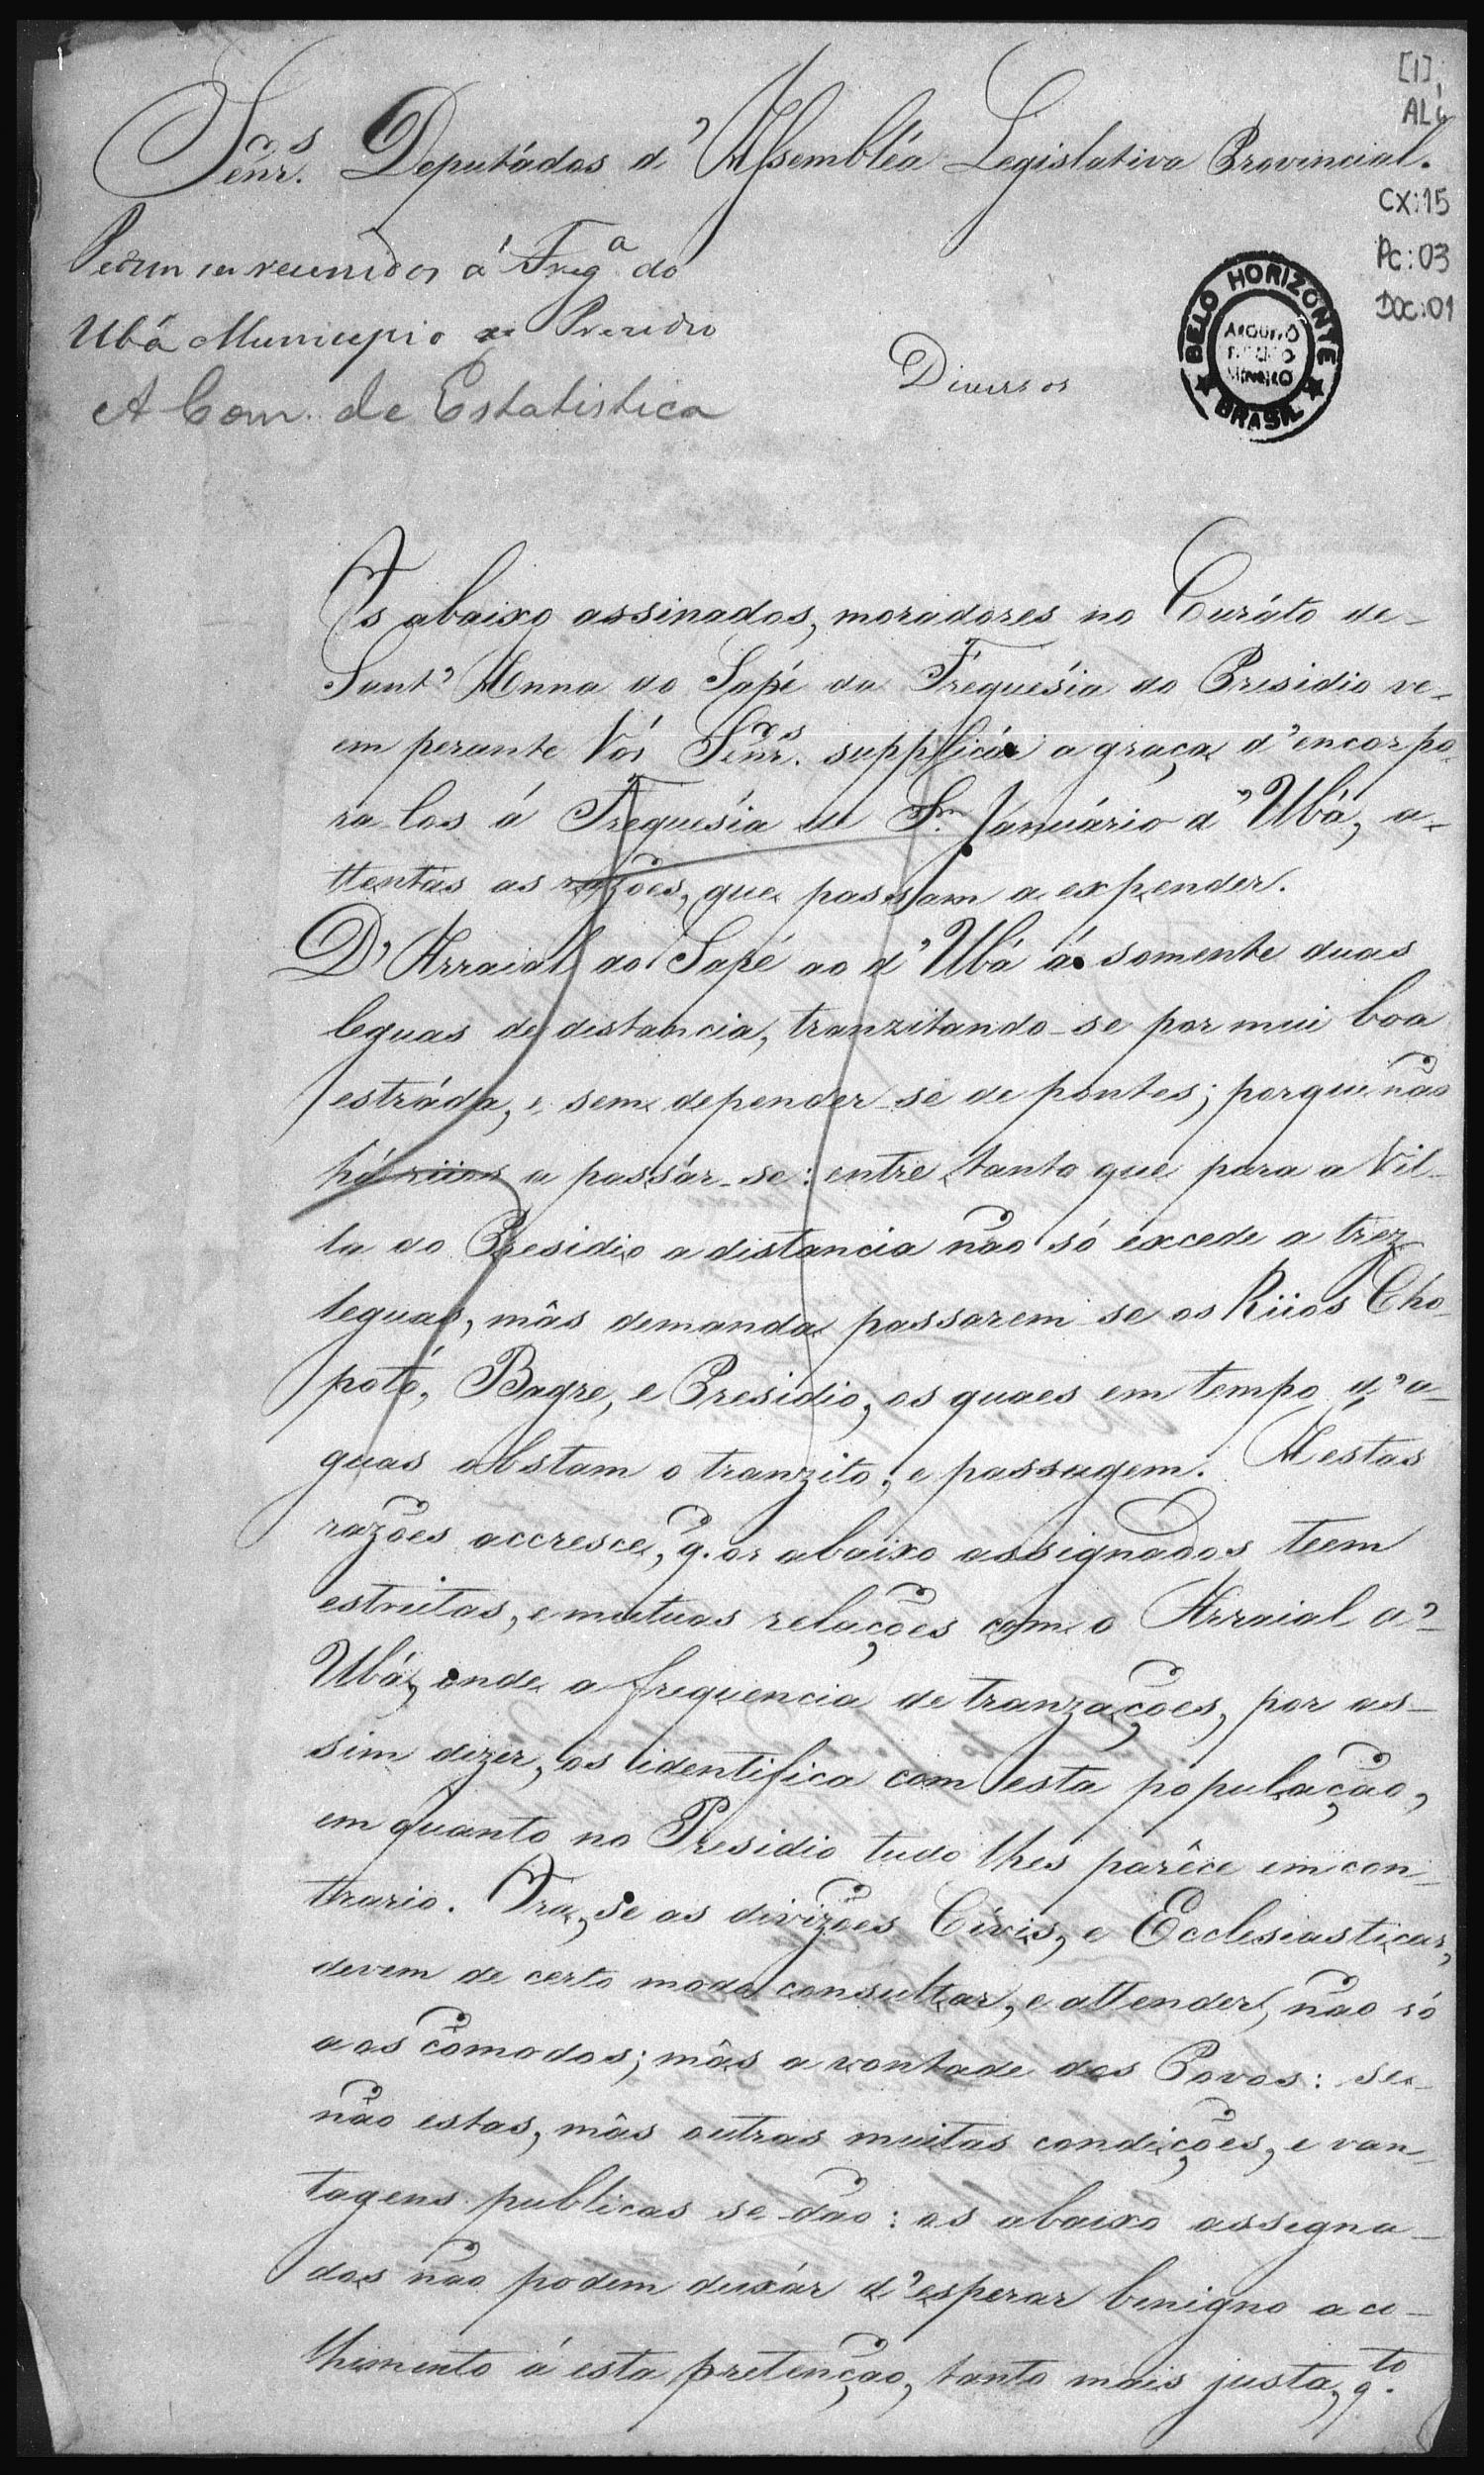 [1]
AL¹
Senr.es Deputádos d'Assembléa Legislativa Provincial.
CX:15
Pc:03
DOC:01
Pedem ser reunidos á Freg.a do
Ubá Municipio do Prezidio
Diversos
A Com. de Estatistica
BELO HORIZONTE
ARQUIVO
PUBLICO
MINEIRO
BRASIL
Os abaixo assinados, moradores no Curáto de
Sant'Anna do Sapé da Freguesía do Presidio ve-
em perante Vós Senr.es supplicár a graça d'encorpo-
ra los á Freguesía de S.m Januário d'Ubá, a-
ttentas as razões, que passam a expender.
D'Arraial do Sapé ao d'Ubá á somente duas
leguas de distancia, tranzitando-se por mui boa
estráda, e sem depender-se de pontes; porque não
há riios a passár-se: entre tanto que para a Vil-
la do Presidio a distancia não só excede a trez
leguas, mâs demanda passarem-se os Riios Cho-
potó, Bagre, e Presidio, os quaes em tempo d'a-
guas obstam o tranzito, e passagem. A estas
razões accresce, q. os abaixo assignados teem
estreitas, e mutuas relações com o Arraial d'
Ubá, onde a frequencia de tranzações, por as-
sim dizer, os identifica com esta população,
em quanto no Presidio tudo lhes parêce em con-
trario. Ora, se as divizões Civis, e Ecclesiasticas,
devem de certo modo consultar, e attender, não só
aos cômodos; mâs a vontade dos Povos: se
não estas, mâs outras muitas condições, e van-
tagens publicas se dão: os abaixo assigna-
dos não podem deixár d'esperar benigno aco-
lhimento á esta pretenção, tanto mais justa, q.to